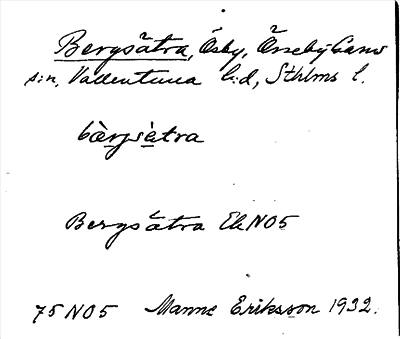 Bergsätra, Ösby, Össeby-Garns
s:n, Vallentuna h:d, Sthlms l.
bærsætra
Bergsätra Ek NO5
75 NO5 Manne Eriksson 1932.